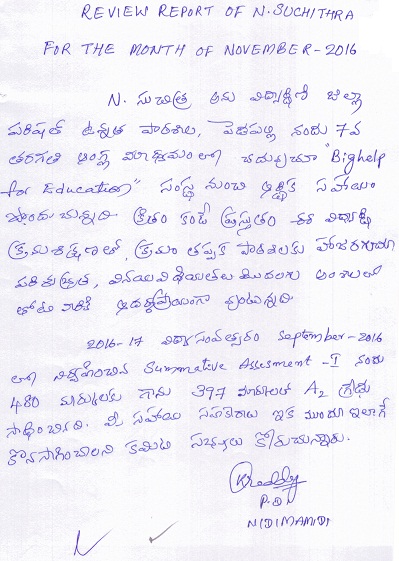 REVIEW REPORT OF N. SUCHITHRA
FOR THE MONTH OF NOVEMBER - 2016
N. సుచిత్ర అను విద్యార్థిని జిల్లా
పరిషత్ ఉన్నత పాఠశాల, పెదపల్లి నందు 7వ
తరగతి ఆంగ్ల మాధ్యమంలో చదువుచూ "Bighelp
for Education" సంస్థ నుంచి ఆర్థిక సహాయం
పొందుచున్నది. క్రితం కంటే ప్రస్తుతం ఈ విద్యార్థి
క్రమశిక్షణతో, క్రమం తప్పక పాఠశాలకు హాజరగుటూ
పరిశుభ్రత, వినయవిధేయతలు మొదలగు అంశాలలో
తోటి వారికి ఆదర్శప్రాయంగా వుంటున్నది.
2016-17 విద్యాసంవత్సరం September-2016
లో నిర్వహించిన Summative Assesment - I నందు
480 మార్కులకు గాను 397 మార్కులతో A2 గ్రేడు
సాధించినది. మీ సహాయ సహకారాలు ఇక ముందూ ఇలాగే
కొనసాగించాలని కమిటి సభ్యులు కోరుచున్నారు.
P.D
NIDIMAMIDI